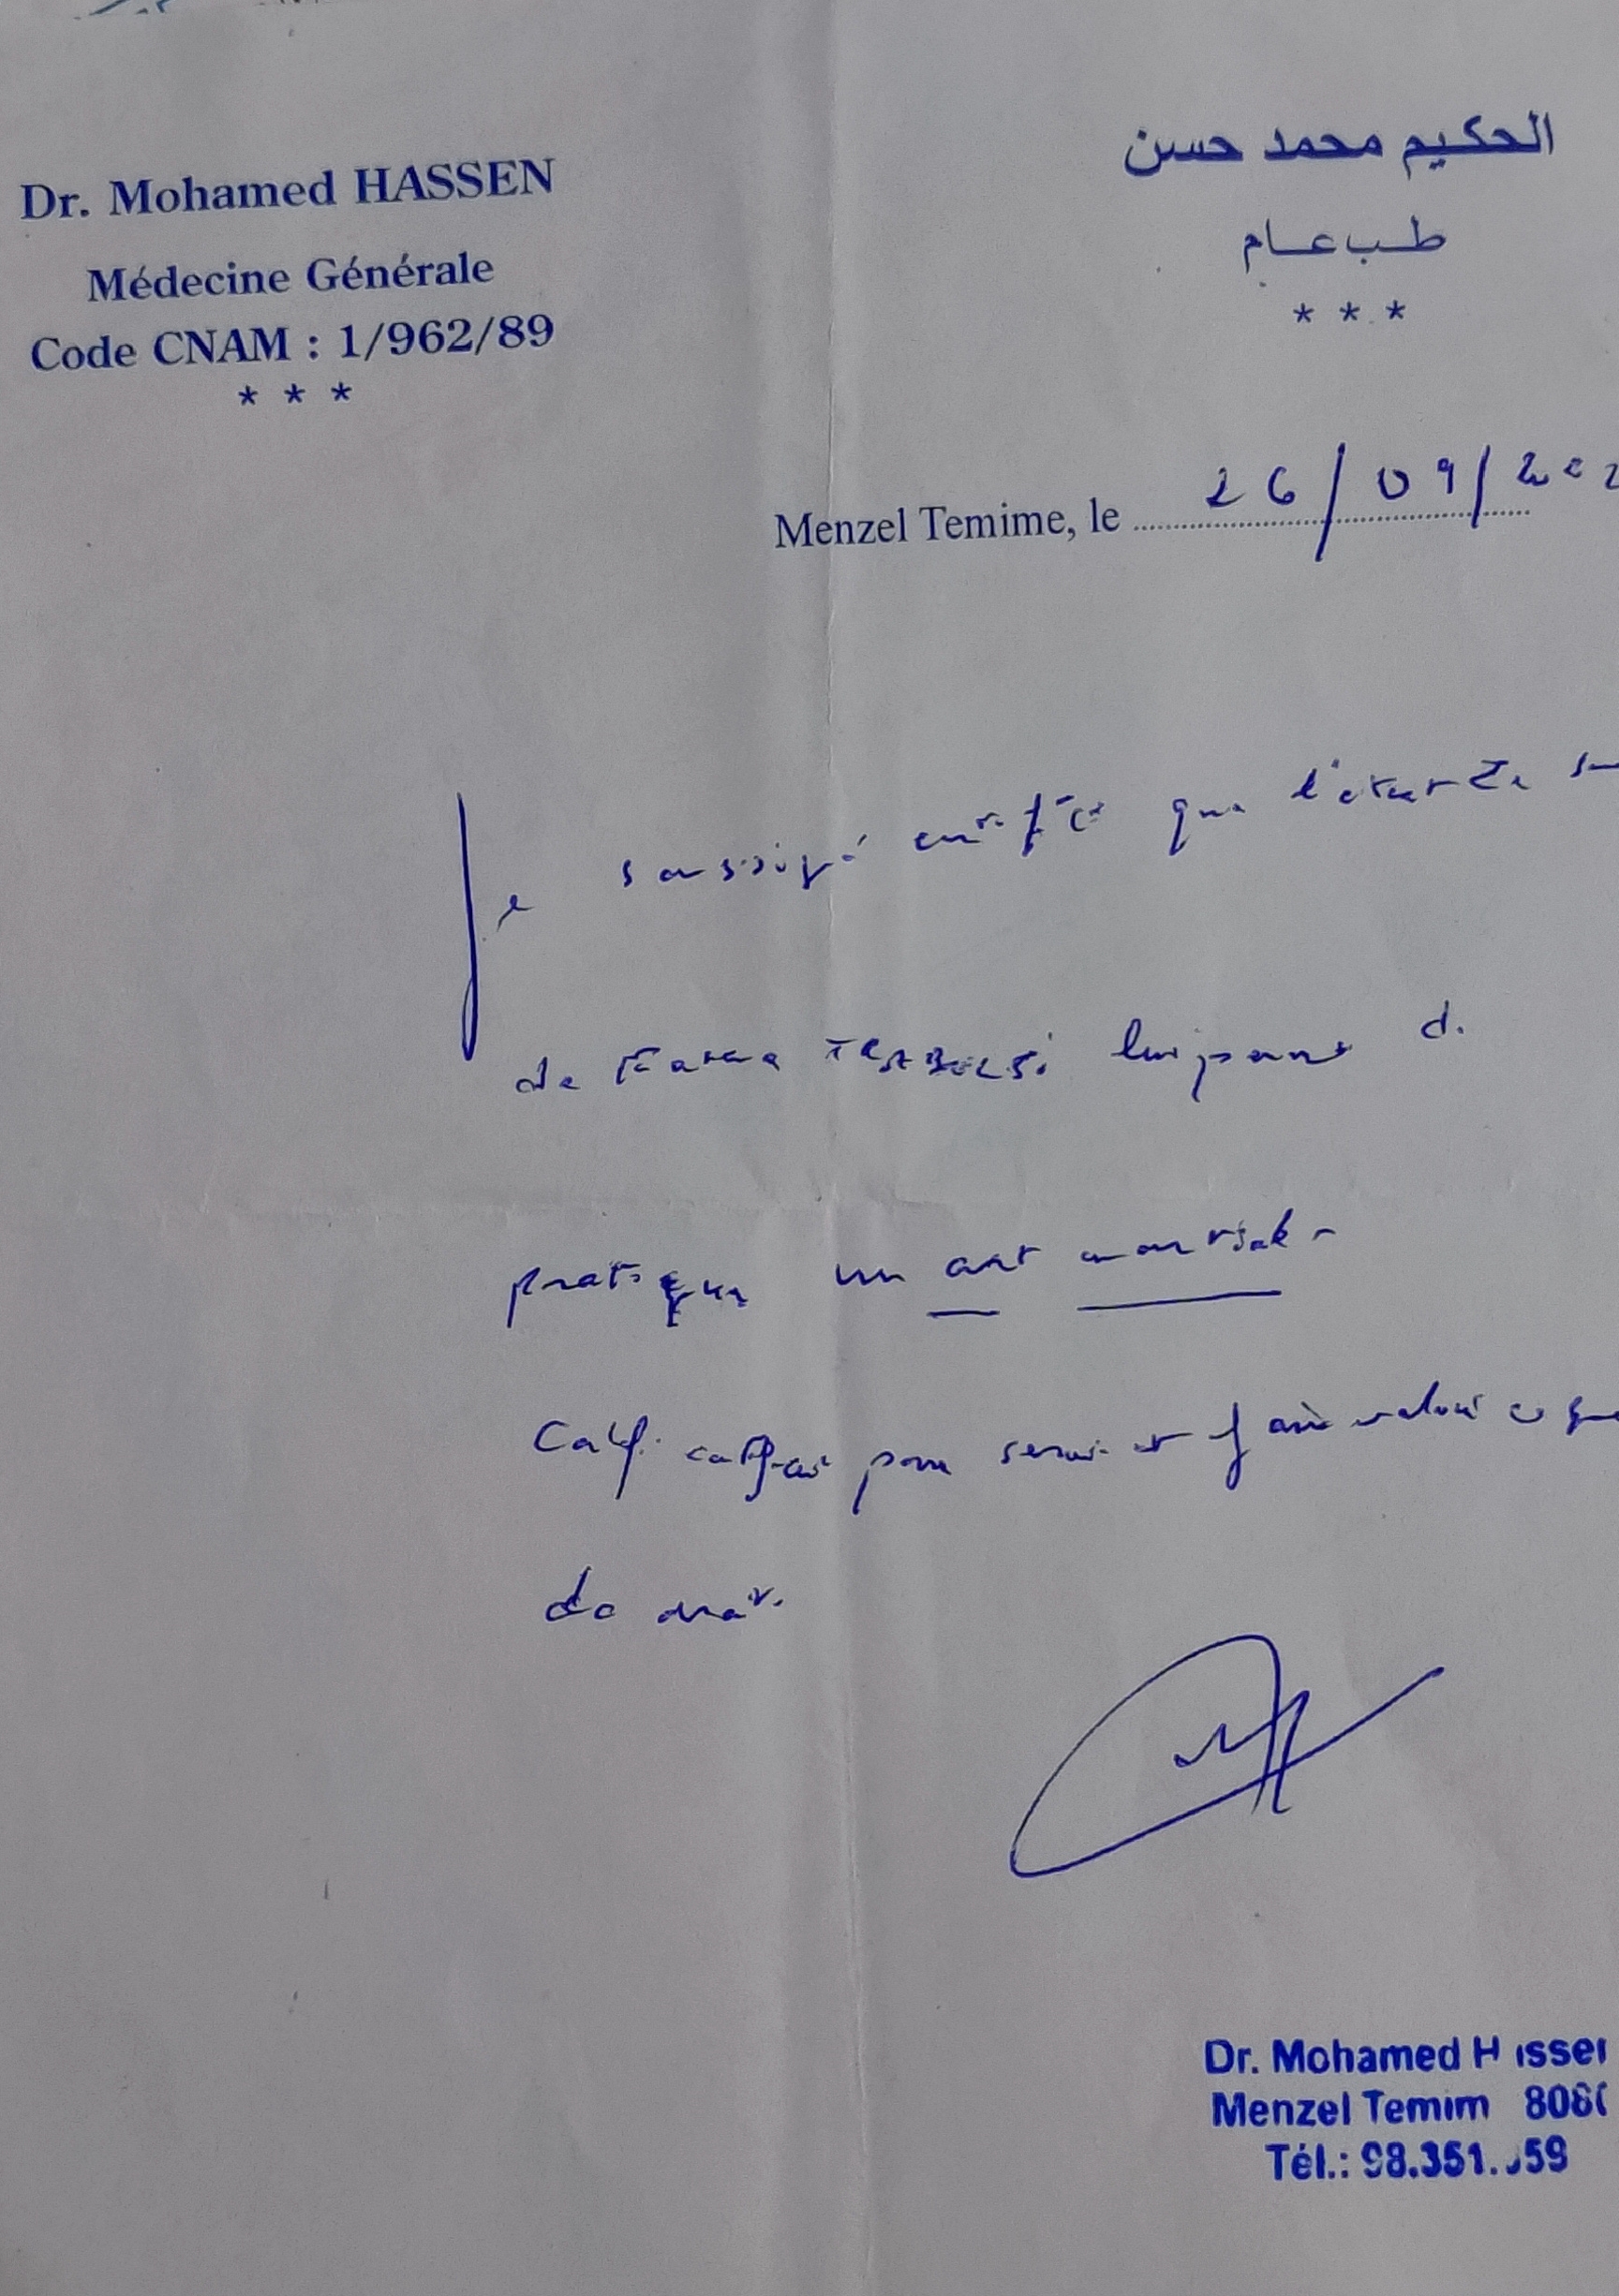 Dr. Mohamed HASSEN
Médecine Générale
Code CNAM : 1/962/89
* * *
الحكيم محمد حسن
طب عام
* * *
Menzel Temime, le 26/09/202
Je soussigné certifie que l'état de
de Fatma TRABELSI lui permet de
pratiquer un art martial.
Certificat pour servir et faire valoir ce que
de droit.
Dr. Mohamed Hassen
Menzel Temim 808
Tél.: 98.351. 59